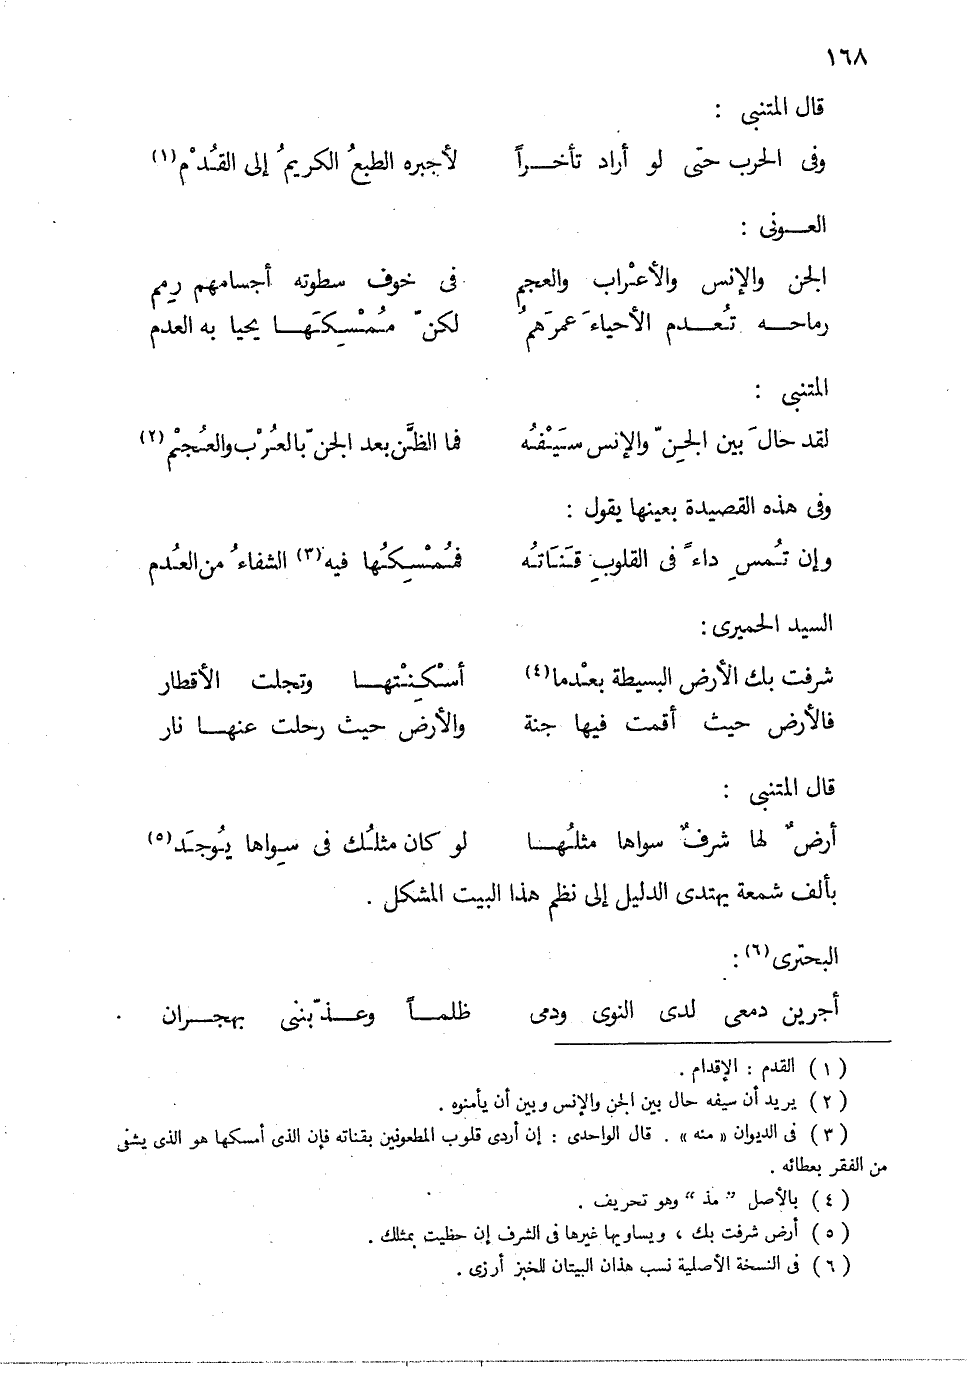 ١٦٨
قال المتنبى :
وفى الحرب حتّى لو أراد تأخــراً لأجبره الطبعُ الكريمُ إلى القُدْم(١)
العــونى :
الجن والإنس والأعْراب والعجم فى خوف سطوته أجسامهم رِمم
رماحــه تُعــدم الأحياءَ عمرَهمُ لكنّ مُمْسِكَهــا يحيا به العدم
المتنبى :
لقد حالَ بين الجِنّ والإنس سَيْفُه فما الظَّن بعد الجن ّبالعُرْب والعُجْم(٢)
وفى هذه القصيدة بعينها يقول :
وإن تُمسِ داءً فى القلوبِ قَنَاتُه فمُمْسِكُها فيه(٣) الشفاءُ من العُدم
السيد الحميرى :
شرفت بك الأرض البسيطة بعْدما(٤) أسْكِنْتهــا وتجلت الأقطار
فالأرض حيث أقمت فيها جنة والأرض حيث رحلت عنهــا نار
قال المتنبى :
أرضٌ لها شرفٌ سواها مثلُهــا لو كان مثلُك فى سِواها يُوجَد(٥)
بألف شمعة يهتدى الدليل إلى نظم هذا البيت المشكل .
البحترى(٦) :
أجرين دمعى لدى النوى ودمى ظلمــاً وعــذّبننى بهجــران
(١) القدم : الإقدام .
(٢) يريد أن سيفه حال بين الجن والإنس وبين أن يأمنوه .
(٣) فى الديوان «منه» . قال الواحدى : إن أردى قلوب المطعونين بقناته فإن الذى أمسكها هو الذى يشفى
من الفقر بعطائه .
(٤) بالأصل ” مذ “ وهو تحريف .
(٥) أرض شرفت بك ، ويساويها غيرها فى الشرف إن حظيت بمثلك .
(٦) فى النسخة الأصلية نسب هذان البيتان للخبز أرزى .